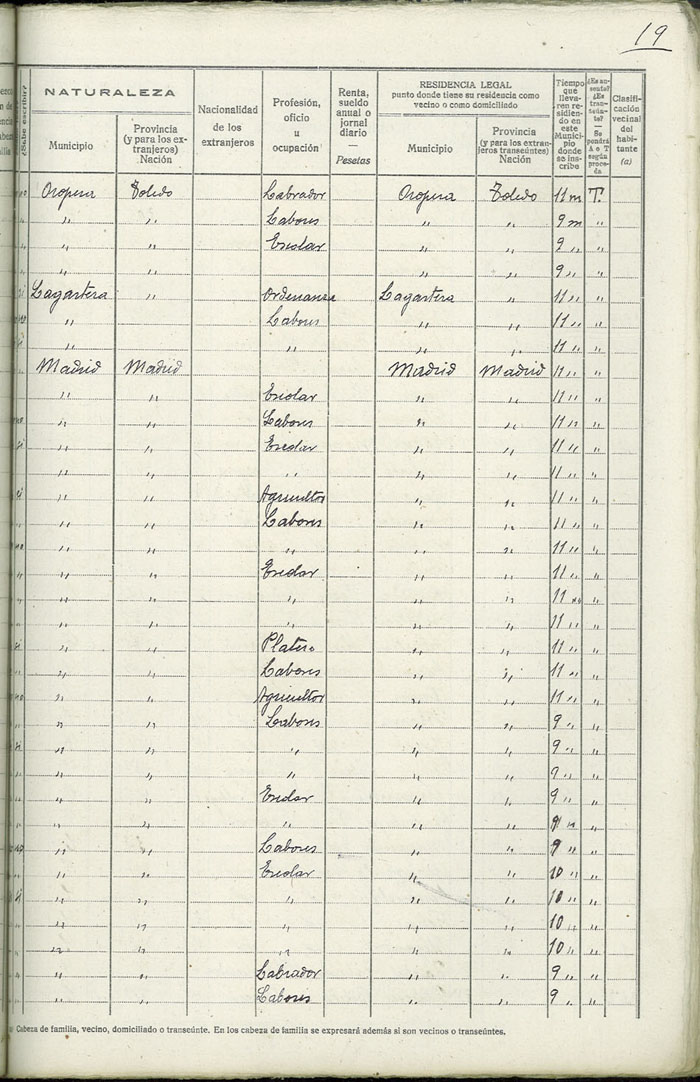 19
¿Sabe escribir?
NATURALEZA
Municipio
Provincia (y para los extranjeros) Nación
Nacionalidad de los extranjeros
Profesión, oficio u ocupación
Renta, sueldo anual o jornal diario — Pesetas
RESIDENCIA LEGAL
punto donde tiene su residencia como vecino o como domiciliado
Municipio
Provincia (y para los extranjeros transeúntes) Nación
Tiempo que llevaren residiendo en este Municipio donde se inscribe
¿Es ausente? ¿Es transeúnte? — Se pondrá A o T según proceda
Clasificación vecinal del habitante (a)
Oropesa Toledo Labrador Oropesa Toledo 11 m T.
" " Labores " " 9 m "
" " Escolar " " 9 " "
" " " " 9 " "
Lagartera " Ordenanza Lagartera " 11 " "
" Labores " " 11 " "
" " " " 11 " "
Madrid Madrid Madrid Madrid 11 " "
" " Escolar " " 11 " "
" " Labores " " 11 " "
" " Escolar " " 11 " "
" " " " " 11 " "
" " Agricultor " " 11 " "
" " Labores " " 11 " "
" " " " " 11 " "
" " Escolar " " 11 " "
" " " " " 11 " "
" " " " 11 " "
" " Platero " " 11 " "
" " Labores " " 11 " "
" " Agricultor " " 11 " "
" " Labores " " 9 " "
" " " " " 9 " "
" " " " " 9 " "
" " Escolar " " 9 " "
" " " " " 9 " "
" " Labores " " 9 " "
" " Escolar " " 10 " "
" " " " " 10 " "
" " " " " 10 " "
" " " " " 10 " "
" " Labrador " " 9 " "
" " Labores " " 9 " "
Cabeza de familia, vecino, domiciliado o transeúnte. En los cabeza de familia se expresará además si son vecinos o transeúntes.